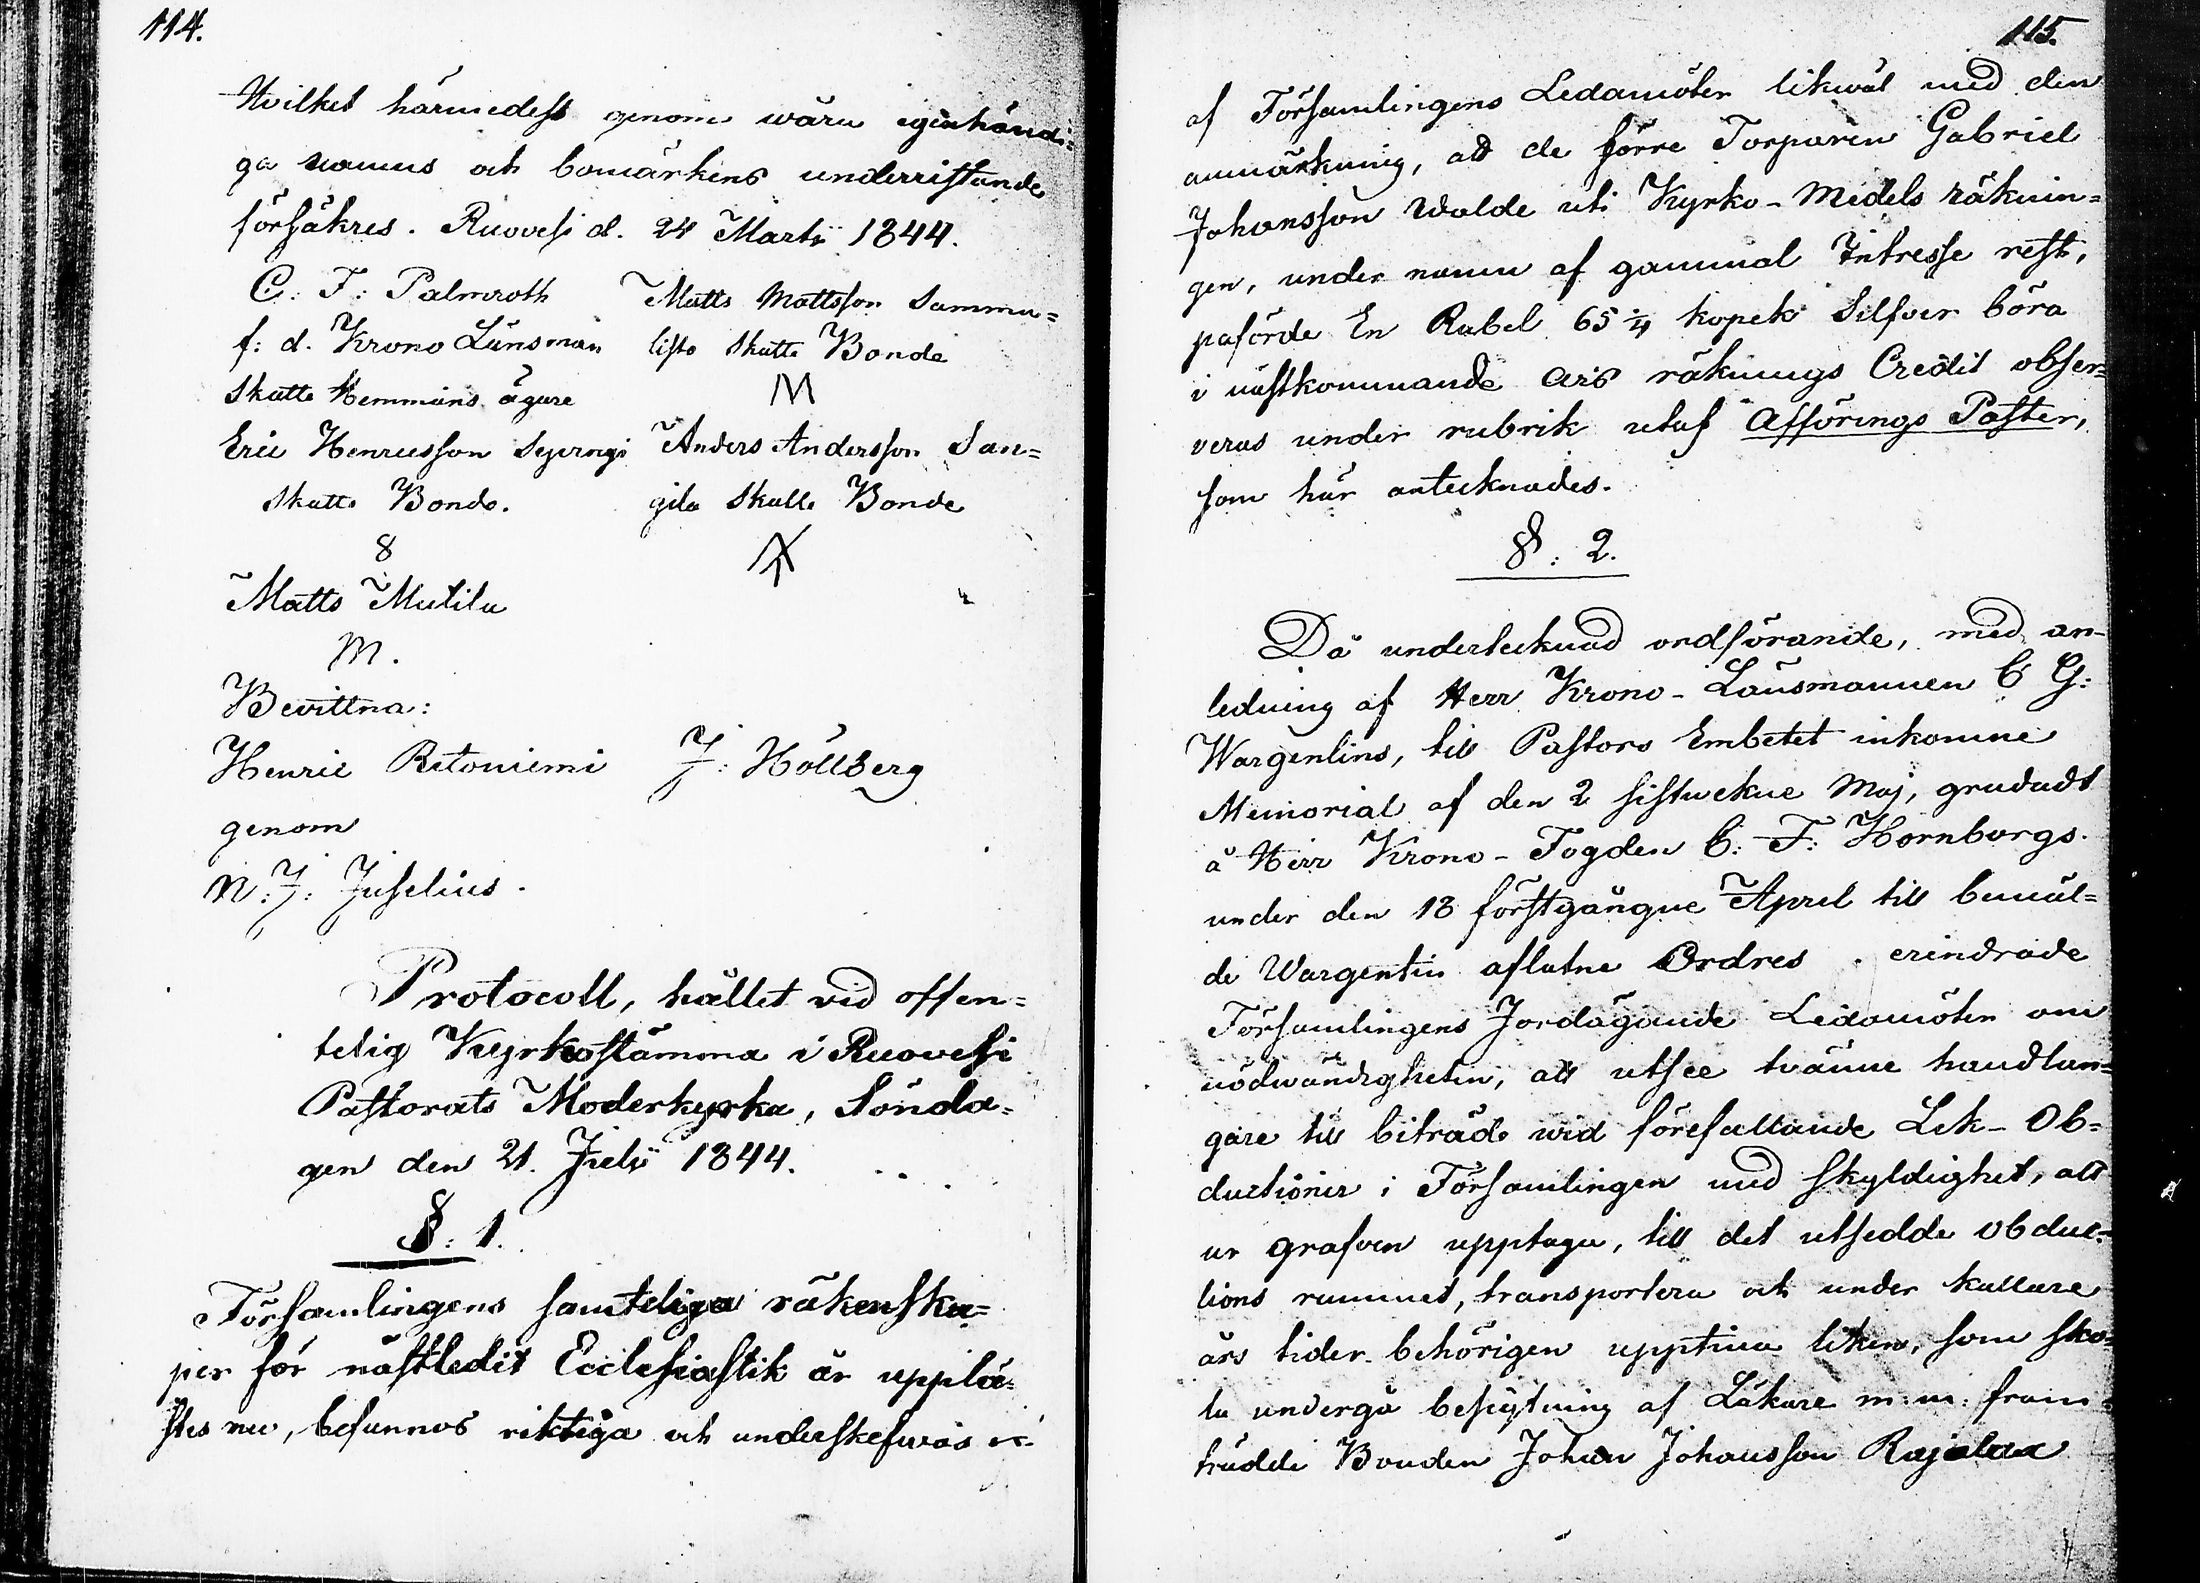 114.
Hvilket härmedest genom wåra egenhändi=
ga namns och bomärkens underristande
försäkres. Ruovesi d. 24 Martii 1844.
C: F: Palmroth
f: d. Krono Länsman
Skatte Hemmans ägare
Eric Henricsson
Skatte Bonde.
8
Matts Mutila
M.
Matts Mattsson Sammu=
listo Skatte Bonde
M
Anders Andersson San=
gila Skatte Bonde
Bevittna:
Henric Ritoniemi J: Hällberg
genom
N: J: Juselius.
Protocoll, hållet vid offen=
telig Kyrkostämma i Ruovesi
Pastorats Moderkyrka, Sönda=
gen den 21. Julii 1844.
§: 1.
Församlingens samteliga räkenska=
per för nästledit Ecclesiastik år upplä=
stes nu, befunnos riktiga och underskrefwos
115.
af Församlingens Ledamöter likwäl med den
anmärkning, att de förre Torparen Gabriel
Johansson Walde uti Kyrko-Medels räknin=
gen, under namn af gammal Intresse rest,
påförde En Rubel 65 1/4 kopek Silfver böra
i nästkommande års räknings Credit obser=
veras under rubrik utaf Afförings Poster,
som här antecknades.
§: 2.
Då undertecknad ordförande, med an-
ledning af Herr Krono-Länsmannen C G:
Wargentins, till Pastors Embetet inkomne
Memorial af den 2 sistwekne Maj, grundadt
å Herr Krono-Fogden C: F: Hornborgs
under den 18 förstgångne April till bemäl=
de Wargentin aflatne Ordres erindrade
Församlingens Jordägande Ledamöter om
nödwändigheten, att utsee tvänne handlan=
gare till biträde wid förefallande Lik-Ob=
ductioner i Församlingen med skyldighet, att
ur grafven upptaga, till det utsedde obduc=
tions rummet, transportera och under kallare
års tider behörigen upptina liken, som sko=
la undergå besigtning af Läkare m: m: fram=
trädde Bonden Johan Johansson Rajalax